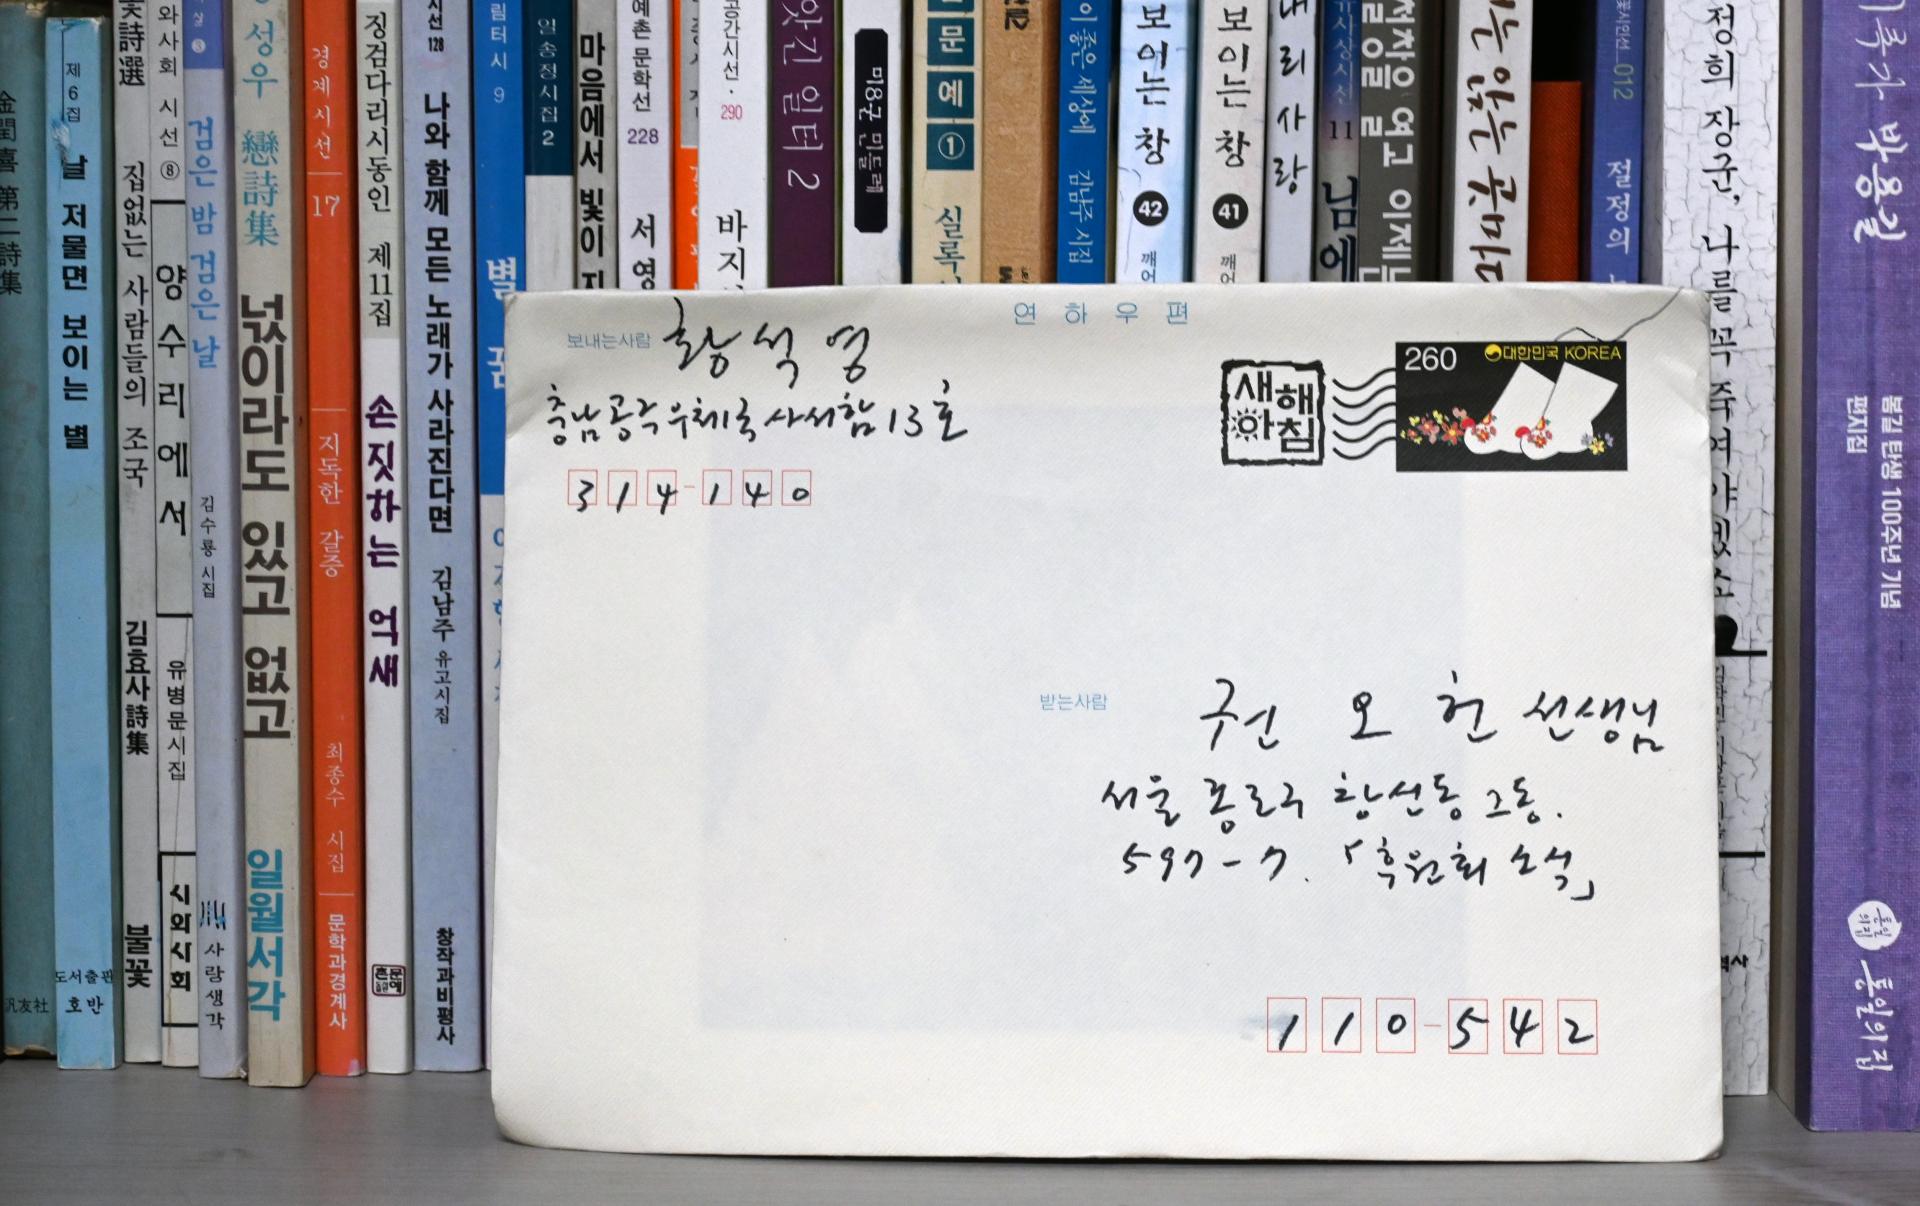 제6집 날 저물면 보이는 별 도서출판 호반
집없는 사람들의 조국 김효사 詩集 불꽃
와사회 시선 ⑧ 양수리에서 유병문시집 시와사회
검은 밤 검은 날 김수룡 시집 사랑생각
성우 戀詩集 넋이라도 있고 없고 일월서각
경제시선 17 지독한 갈증 최종수 시집 문학과경계사
징검다리시동인 제11집 손짓하는 억새
시선 128 나와 함께 모든 노래가 사라진다면 김남주 유고시집 창작과비평사
림터시 9 별
일송정시집 2
마음에서 빛이
예촌문학선 228 서영
공간시선·290 바지
앗긴 일터 2
미8군 민들레
문예 ① 실록
이 좋은 세상에 김남주 시집
보이는 창 42 깨어
보이는 창 41 깨어
내리사랑
11 님에
012 절정의
정희 장군, 나를 꼭 죽여야겠소
박용길 봄길 탄생 100주년 기념 편지집 통일의집
연하우편
보내는사람 황석영
충남 공주우체국 사서함 13호
314-140
새해아침
260 대한민국 KOREA
받는사람 권오헌 선생님
서울 종로구 창신동 2동.
597-7. 「후원회 소식」
110-542